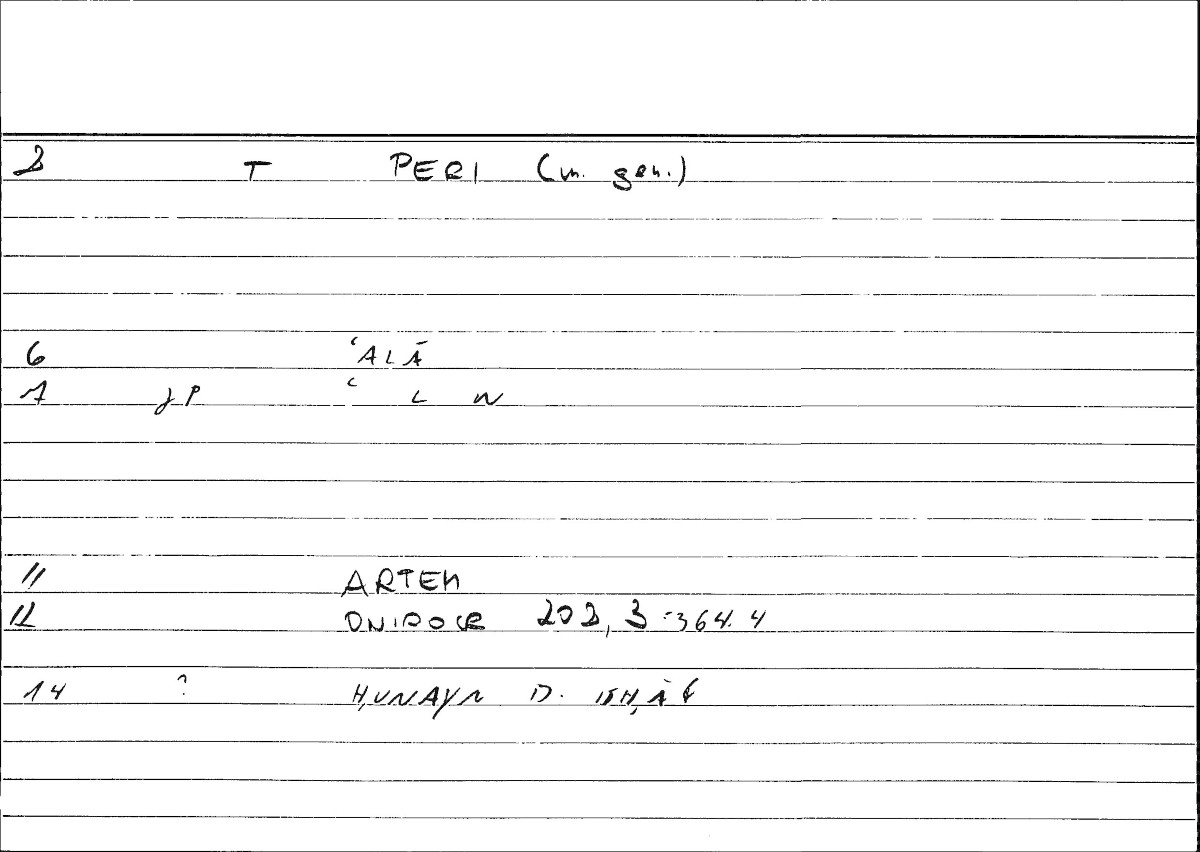 2 T PERI (m. gen.)
6 ʿALĀ
7 JP ʿ L W
11 ARTEM
12 ONIROCR 202, 3 : 364. 4
14 ? H,UNAYN B. ISH,ĀQ